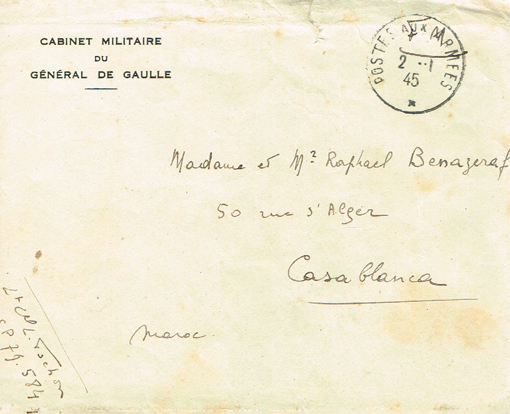 CABINET MILITAIRE
DU
GÉNÉRAL DE GAULLE
POSTES AUX ARMÉES
2 - 1
45
*
Madame et Mr Raphael Benazeraf
50 rue d'Alger
Casablanca
Maroc
SP 79.584